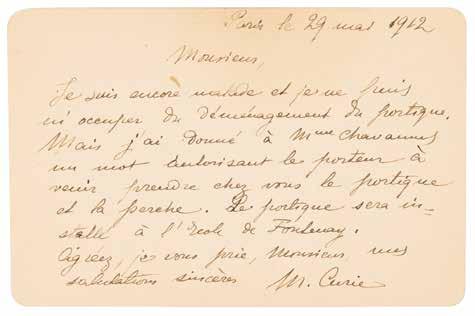 Paris le 29 mai 1912
Monsieur,
Je suis encore malade et je ne puis
m'occuper du déménagement du portique.
Mais j'ai donné à Mme Chavannes
un mot autorisant le porteur à
venir prendre chez vous le portique
et la perche. Le portique sera in-
stallé à l'Ecole de Fontenay.
Agréez, je vous prie, Monsieur, mes
salutations sincères M. Curie